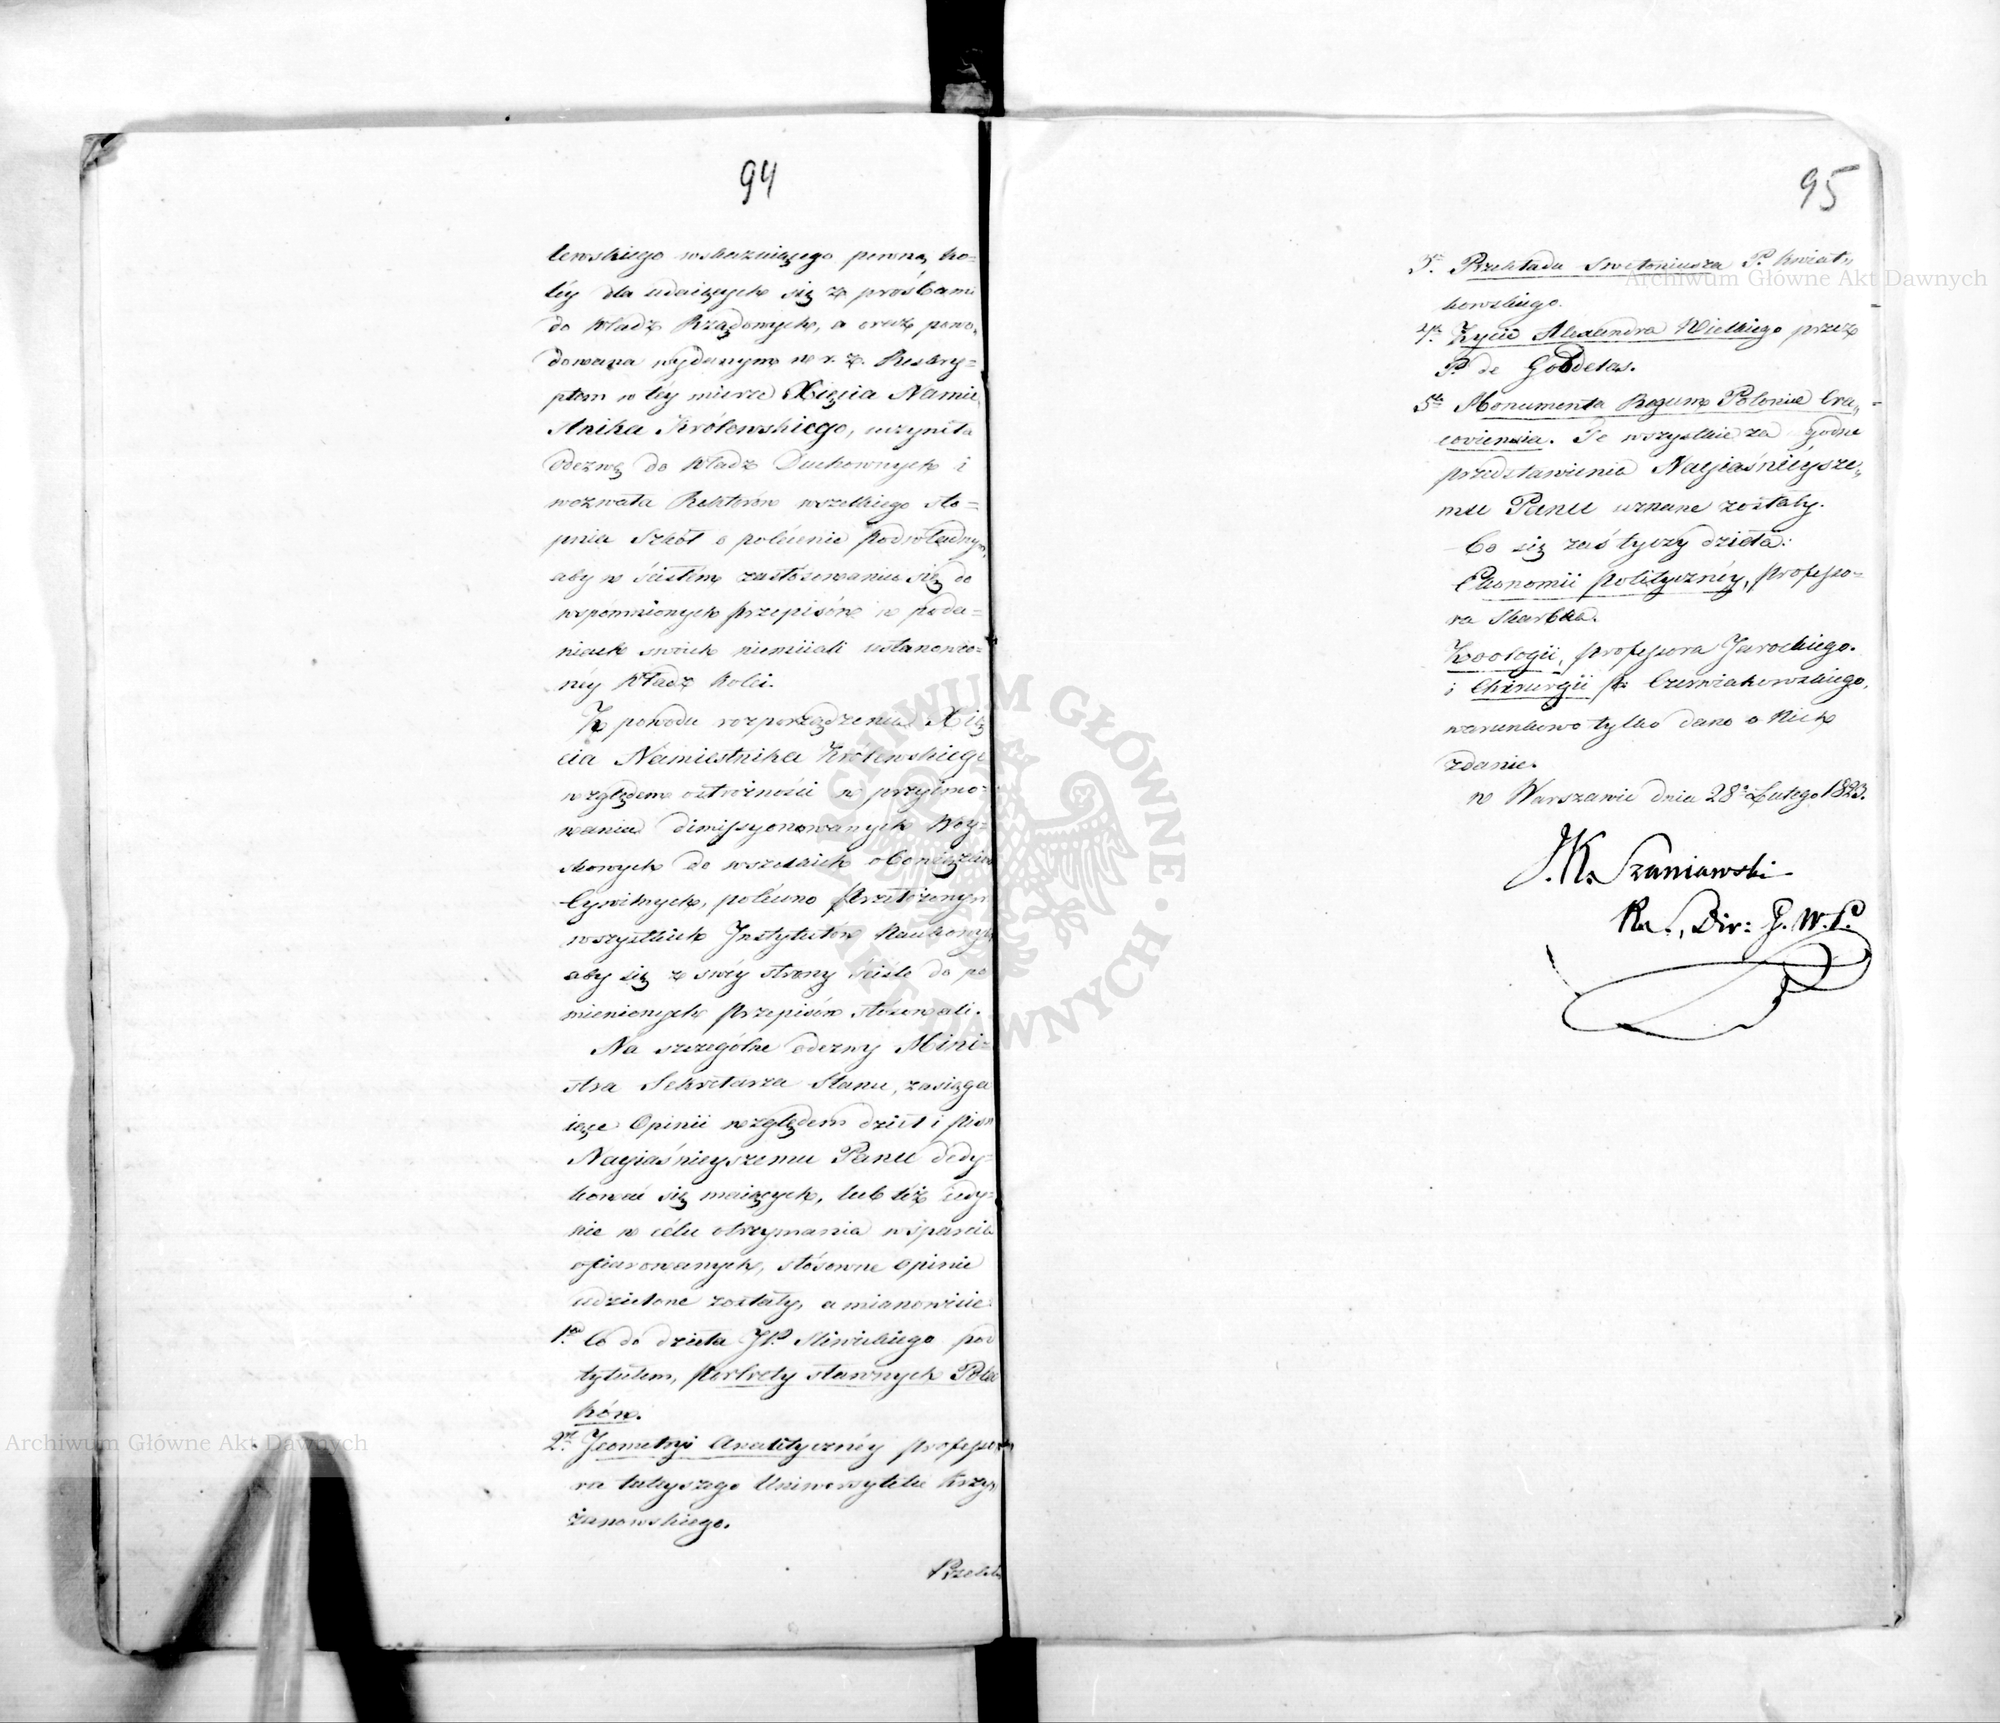 94
lewskiego wskazuiącego pewną ko-
léy dla udaiących się z prośbami
do Władz Rządowych, a oraz powo-
dowana wydanym w r. z. Reskryp-
ptem w téy mierze Xięcia Namie
stnika Królewskiego, uczyniła
odezwę do Władz Duchownych i
wezwała Rektorów wszelkiego sto-
pnia Szkół o polécenie podwładnym,
aby w ścisłém zastósowaniu się do
wspomnionych przepisów w poda-
niach swoich niemiiali ustanowio-
néy Władz kolei.
Z powodu rozporządzenia Xię
cia Namiestnika Królewskiego
względem ostrożności w przyimo-
waniu dimissyonowanych Woy-
skowych do wszelkich obowiązków
Cywilnych, polécono Przełożonym
wszystkich Instytutów Naukowych,
aby się z swéy strony ściśle do po
mienionych przepisów stósowali.
Na szczególne odezwy Mini-
stra Sekretarza Stanu, zasięga
iące Opinii względem dzieł i pism
Nayiaśnieyszemu Panu dedy-
kować się maiących, lub téż iedy-
nie w célu otrzymania wsparcia
ofiarowanych, stósowne opinie
udzielone zostały, a mianowicie
1. Co do dzieła JP. Sliwickiego pod
tytułem, Portrety sławnych Pola
ków.
2. Jeometryi Analitycznéy professo
ra tuteyszego Uniwersytetu Krzy
żanowskiego.
Przekła
95
3. Przekładu Swetoniusza P. Kwiat-
kowskiego.
4. Życie Alexandra Wielkiego przez
P. de Goddetas.
5. Monumenta Regum Poloniae Cra-
coviensia. Te wszystkie za godne
przedstawienia Nayiaśnieysze-
mu Panu uznane zostały.
Co się zaś tyczy dzieła:
Ekonomii politycznéy, professo-
ra Skarbka.
Zoologii, professora Jarockiego.
i Chirurgii p: Czerniakowskiego,
warunkowo tylko dano o nich
zdanie.
w Warszawie dnia 28o Lutego 1823.
J. K. Szaniawski
Ra., Dir: J. W. P.
Archiwum Główne Akt Dawnych
Archiwum Główne Akt Dawnych
ARCHIWUM GŁÓWNE AKT DAWNYCH